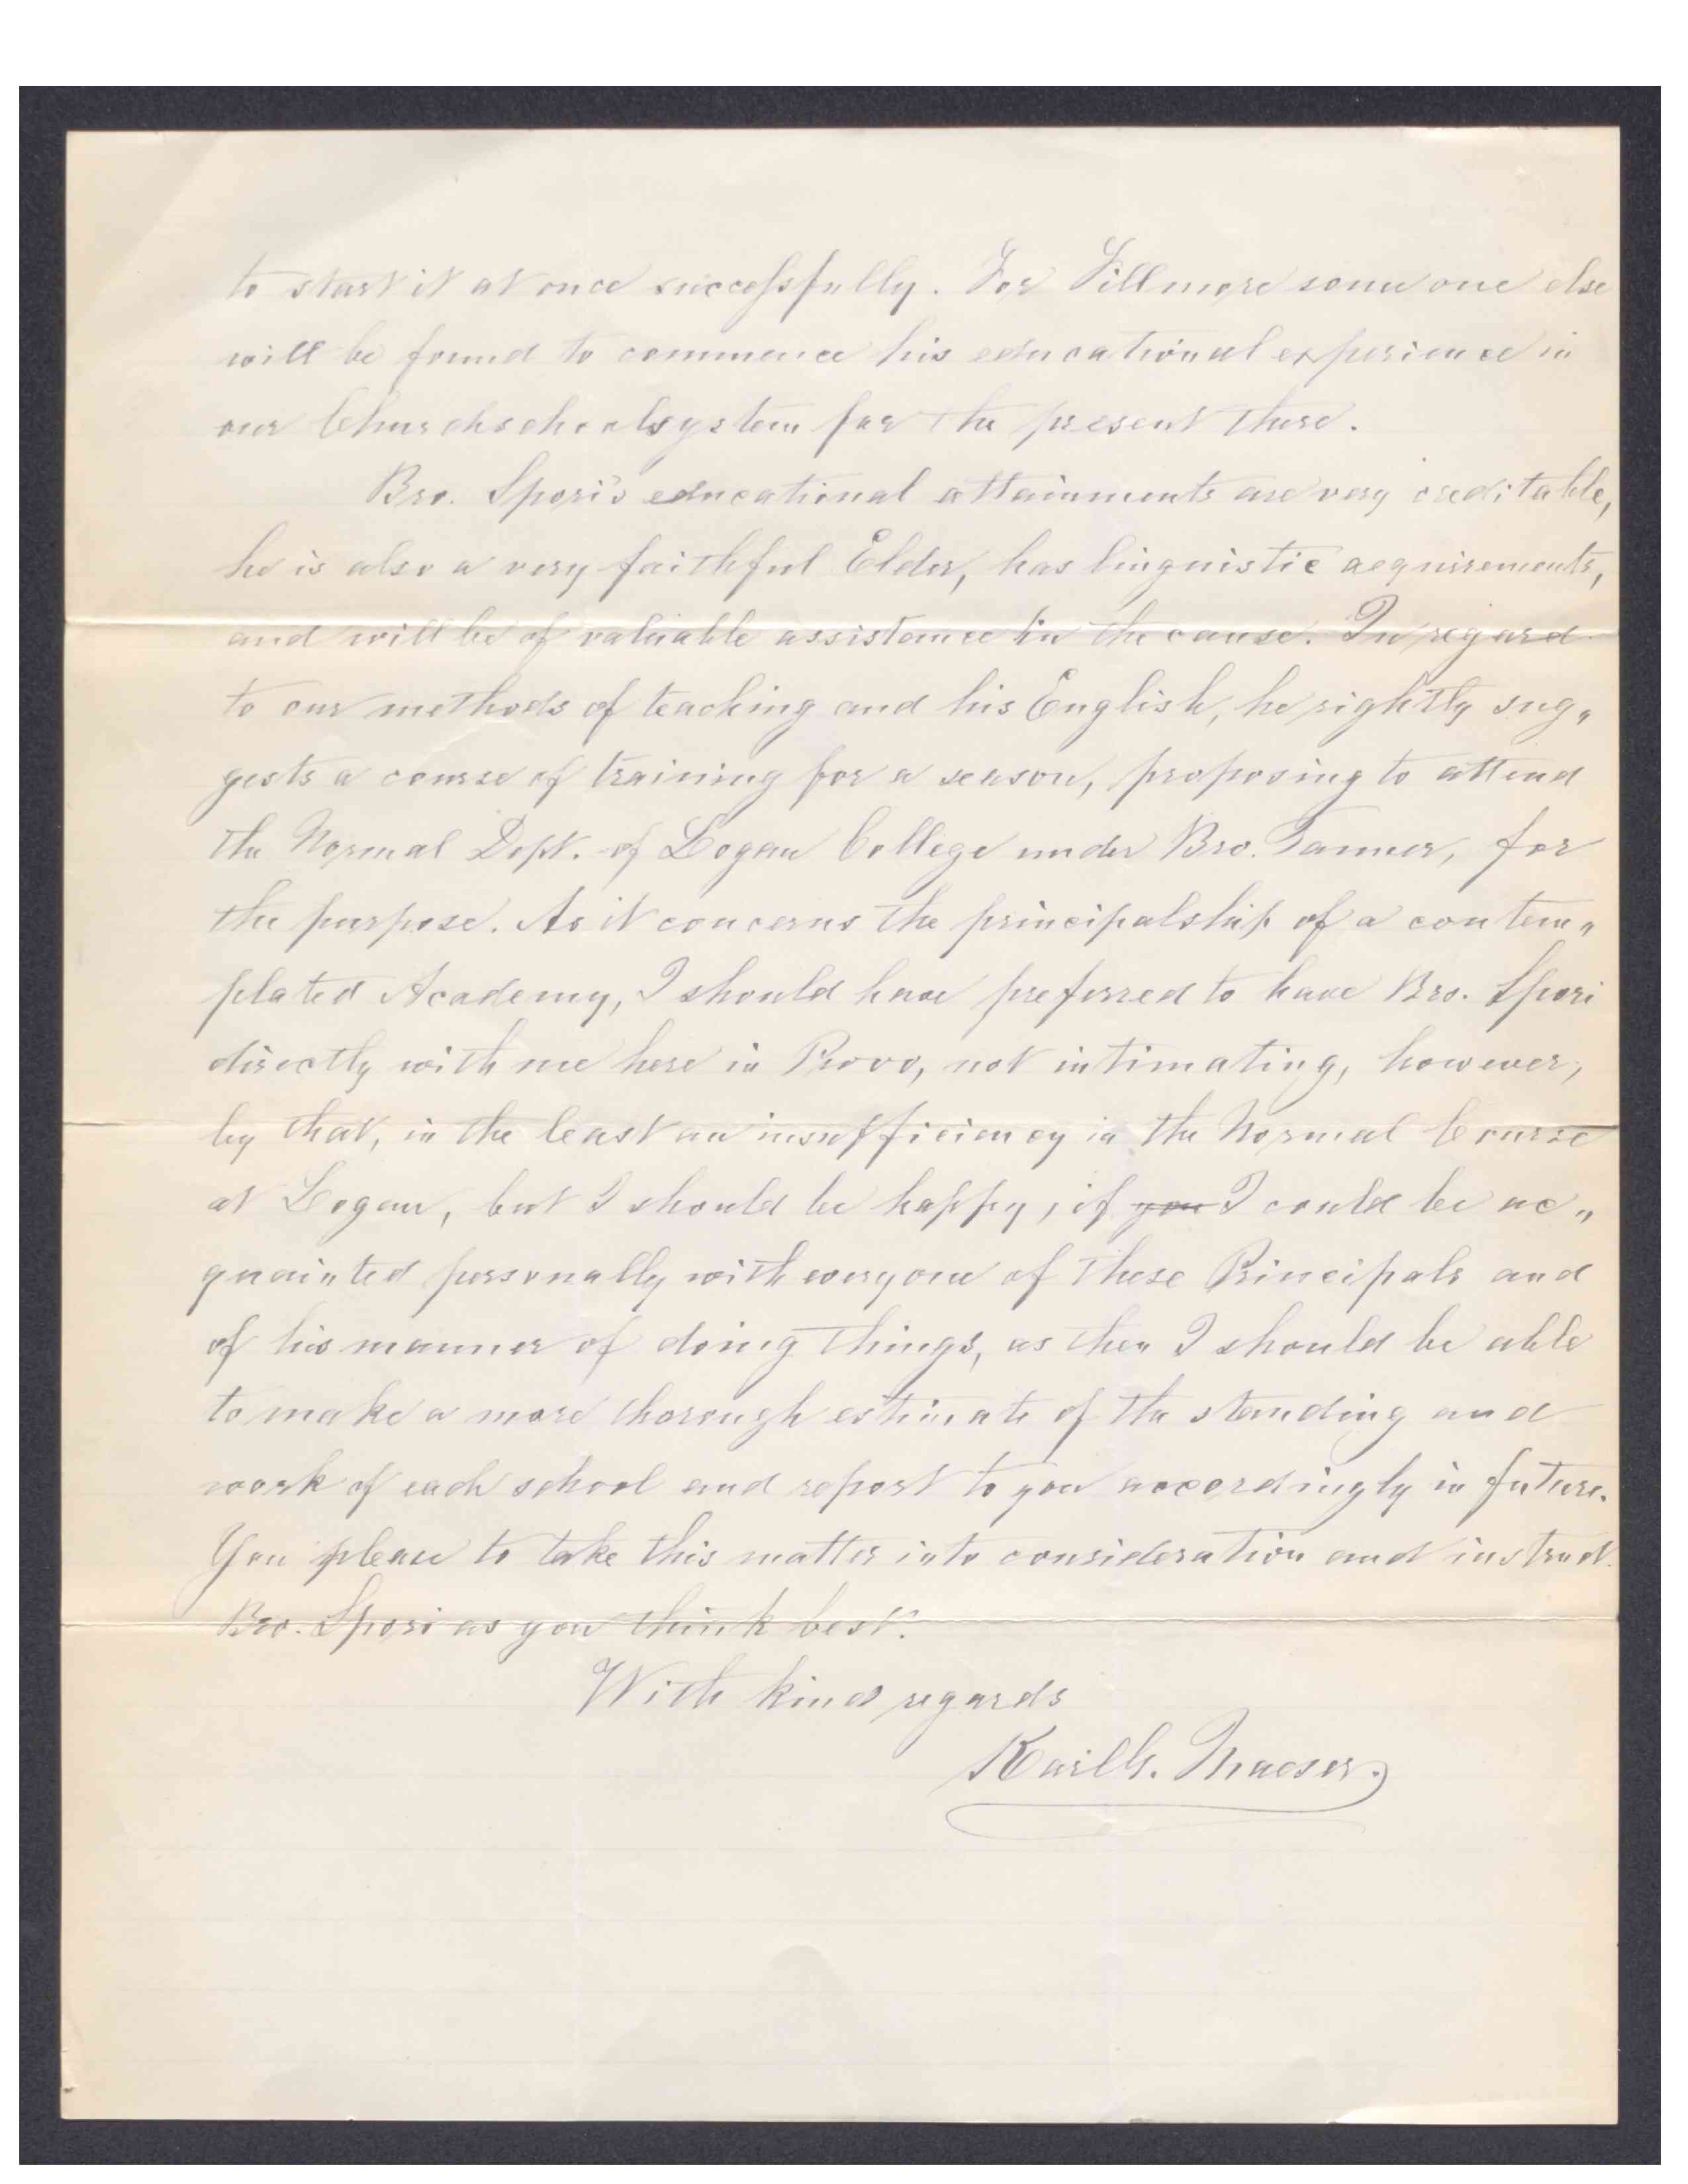 to start it at once successfully. For Fillmore some one else
will be found to commence his educational experience in
our Churchschoolsystem for the present there.
Bro. Spori's educational attainments are very creditable,
he is also a very faithful Elder, has linguistic acquirements,
and will be of valuable assistance in the cause. In regard
to our methods of teaching and his English, he rightly sug„
gests a course of training for a season, proposing to attend
the Normal Dept. of Logan College under Bro. Tanner, for
the purpose. As it concerns the principalship of a contem„
plated Academy, I should have preferred to have Bro. Spori
directly with me here in Provo, not intimating, however,
by that, in the least an insufficiency in the Normal Course
at Logan, but I should be happy, if you I could be ac„
quainted personally with everyone of these Principals and
of his manner of doing things, as then I should be able
to make a more thorough estimate of the standing and
work of each school and report to you accordingly in future.
You please to take this matter into consideration and instruct
Bro. Spori as you think best.
With kind regards
Karl G. Maeser.